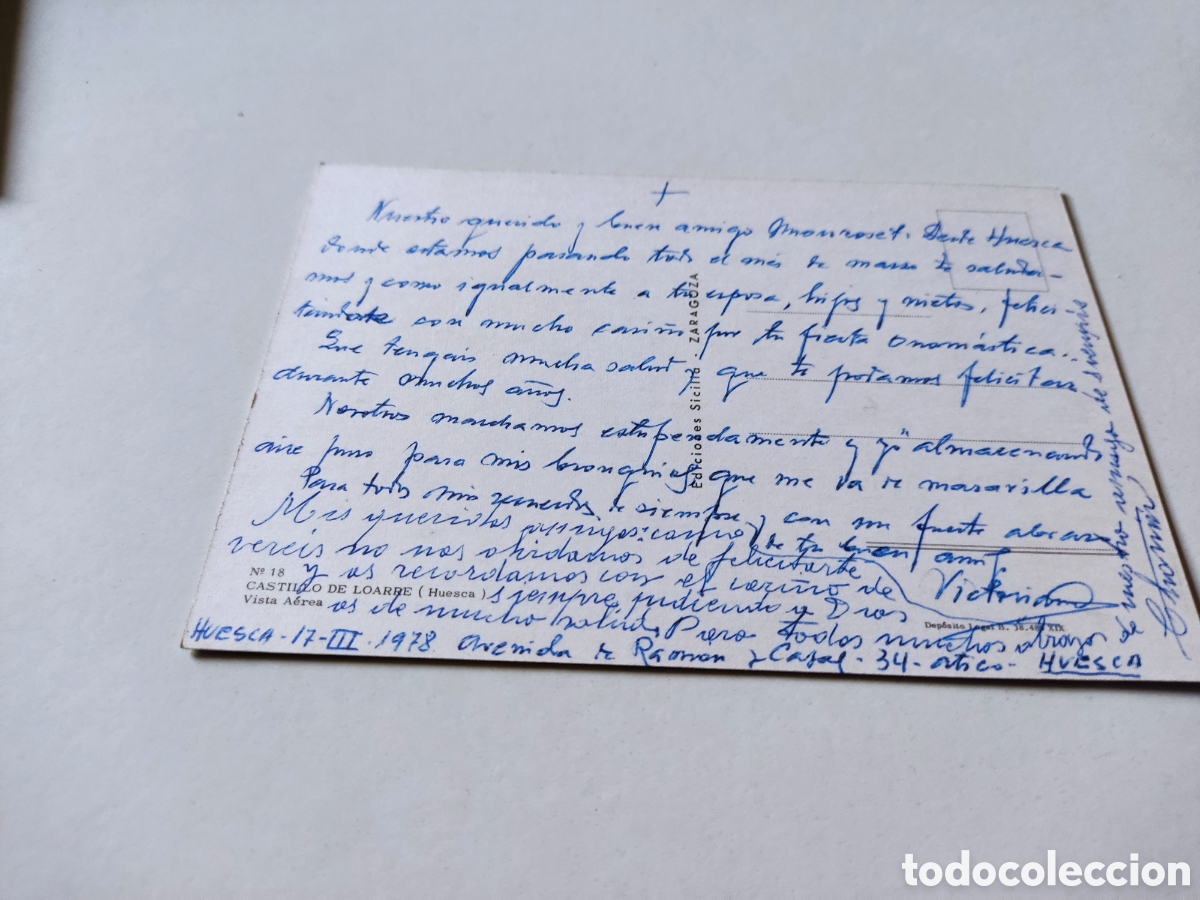 +
Nuestro querido y buen amigo Monroset. Desde Huesca
donde estamos pasando todo el mes de marzo te saluda-
mos y como igualmente a tu esposa, hijos y nietos, felici-
tandote con mucho cariño por tu fiesta onomástica..
Que tengais mucha salud y que te podamos felicitar
durante muchos años.
Nosotros marchamos estupendamente y yo almacenando
aire puro para mis bronquios que me va de maravilla
Para todos mis recuerdos de siempre y con un fuerte abrazo
de tu buen amigo
Victoriano
Mis queridos amigos: como
vereis no nos olvidamos de felicitarte
y os recordamos con el cariño de
siempre, pidiendo a Dios
os de mucha salud. Para todos muchos abrazos
de nuestro
de siempre
Nº 18
CASTILLO DE LOARRE (Huesca)
Vista Aérea
Ediciones Sicilia - ZARAGOZA
Depósito Legal
XIX
HUESCA-17-III-1978. Avenida de Ramon y Cajal-34-atico-HUESCA
todocoleccion